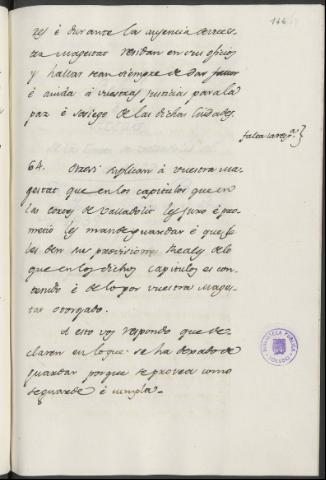 116
res é durante la ausencia de vues-
tra magestat residan en sus oficios
y hallas sean siempre de dar favor
é auida á vuestras justicia para la
paz é sosiego de las dichas Ciudades.
falta la resp.ta}
64. Otrosi suplican á vuestra ma-
gestat que en los capitulos que en
las cortes de Valladolit les juro é pro-
metio les mande guardar é que se
les den sus provisiones Reales de lo
que en los dichos capitulos es con-
tenido é de lo por vuestra mages-
tat otorgado.
A esto vos respondo que de-
claren en lo que se ha dexado de
guardar porque se provea como
se guarde é cumpla.
BIBLIOTECA PUBLICA
TOLEDO